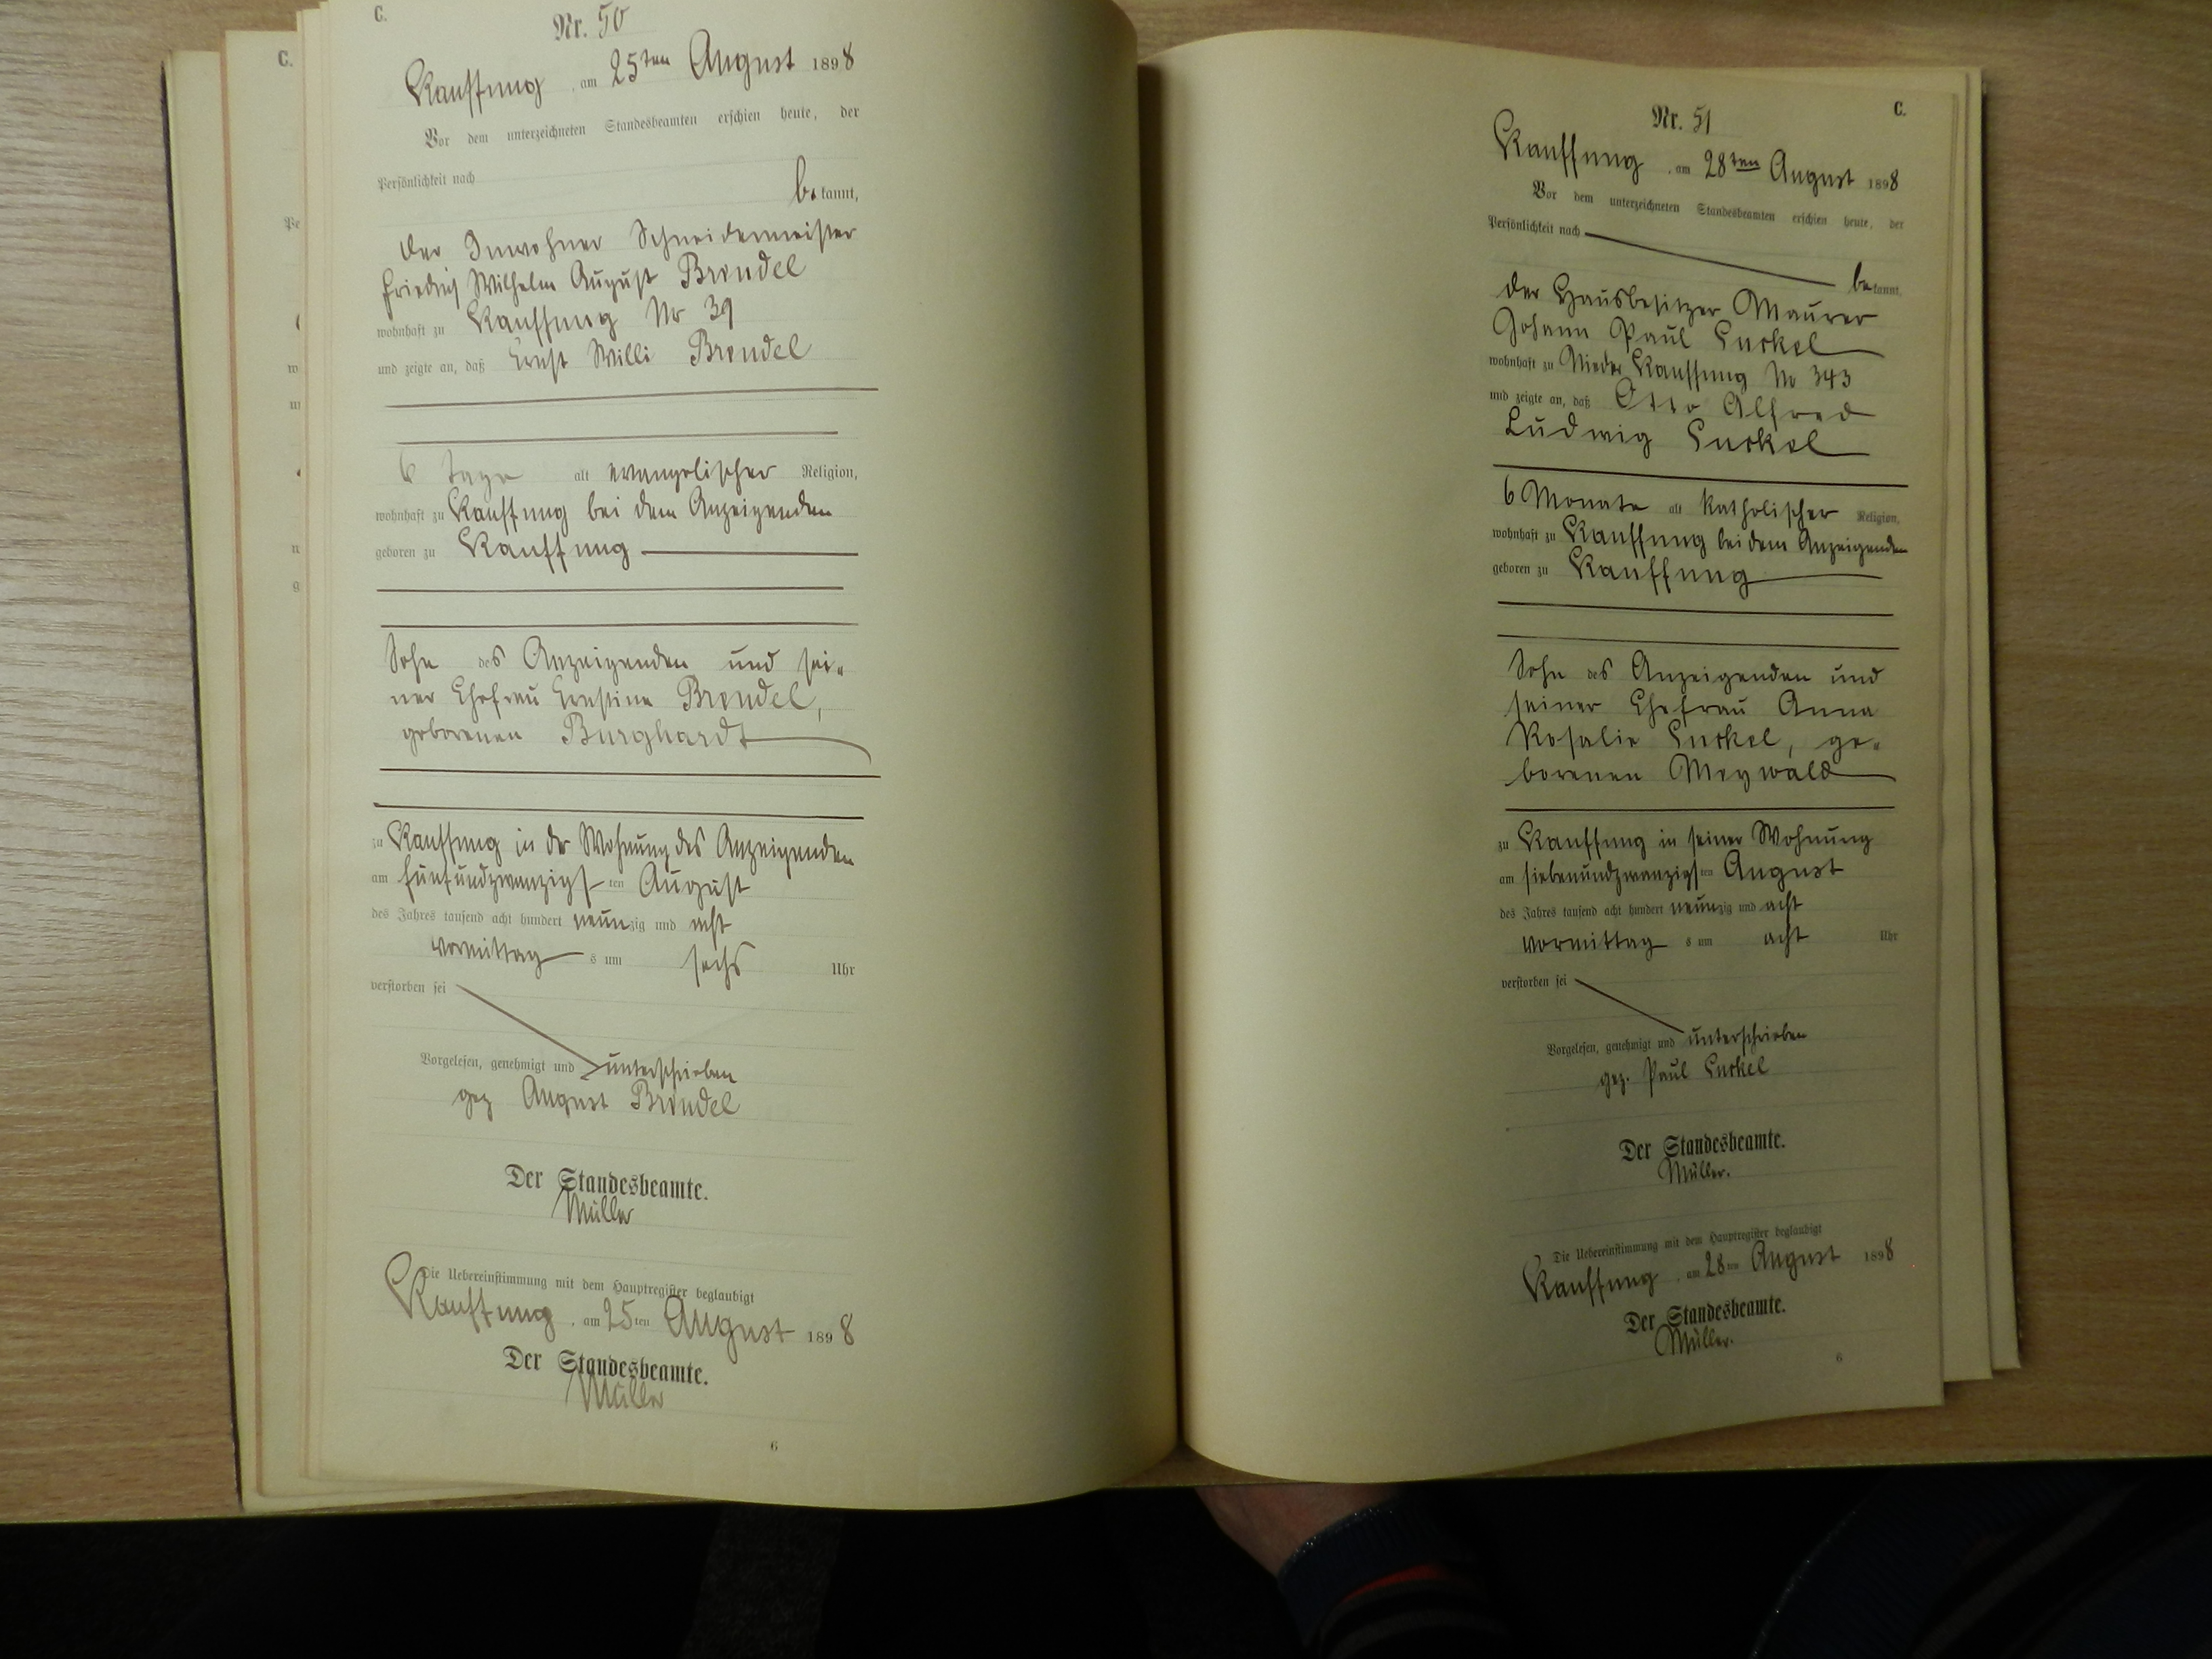 C.
Nr. 50
Kauffung, am 25ten August 1898
Vor dem unterzeichneten Standesbeamten erschien heute, der
Persönlichkeit nach
bekannt,
der Inwohner Schneidermeister
Friedrich Wilhelm August Brendel
wohnhaft zu Kauffung No 39
und zeigte an, daß Ernst Willi Brendel
6 Tage alt evangelischer Religion,
wohnhaft zu Kauffung bei dem Anzeigenden
geboren zu Kauffung
Sohn des Anzeigenden und sei-
ner Ehefrau Ernstine Brendel,
geborenen Burghardt
zu Kauffung in der Wohnung des Anzeigenden
am fünfundzwanzigsten August
des Jahres tausend acht hundert neunzig und acht
vormittags um sechs Uhr
verstorben sei
Vorgelesen, genehmigt und unterschrieben
gez August Brendel
Der Standesbeamte.
Müller
Die Uebereinstimmung mit dem Hauptregister beglaubigt
Kauffung, am 25ten August 1898
Der Standesbeamte.
Müller
6
C.
Nr. 51
Kauffung, am 28ten August 1898
Vor dem unterzeichneten Standesbeamten erschien heute, der
Persönlichkeit nach
bekannt,
der Hausbesitzer Maurer
Johann Paul
wohnhaft zu Nieder Kauffung No 343
und zeigte an, daß Otto Alfred
Ludwig
6 Monate alt katholischer Religion,
wohnhaft zu Kauffung bei dem Anzeigenden
geboren zu Kauffung
Sohn des Anzeigenden und
seiner Ehefrau Anna
Rosalie ge-
borenen Meywald
zu Kauffung in seiner Wohnung
am siebenundzwanzigsten August
des Jahres tausend acht hundert neunzig und acht
vormittags um acht Uhr
verstorben sei
Vorgelesen, genehmigt und unterschrieben
gez. Paul
Der Standesbeamte.
Müller.
Die Uebereinstimmung mit dem Hauptregister beglaubigt
Kauffung, am 28ten August 1898
Der Standesbeamte.
Müller.
6